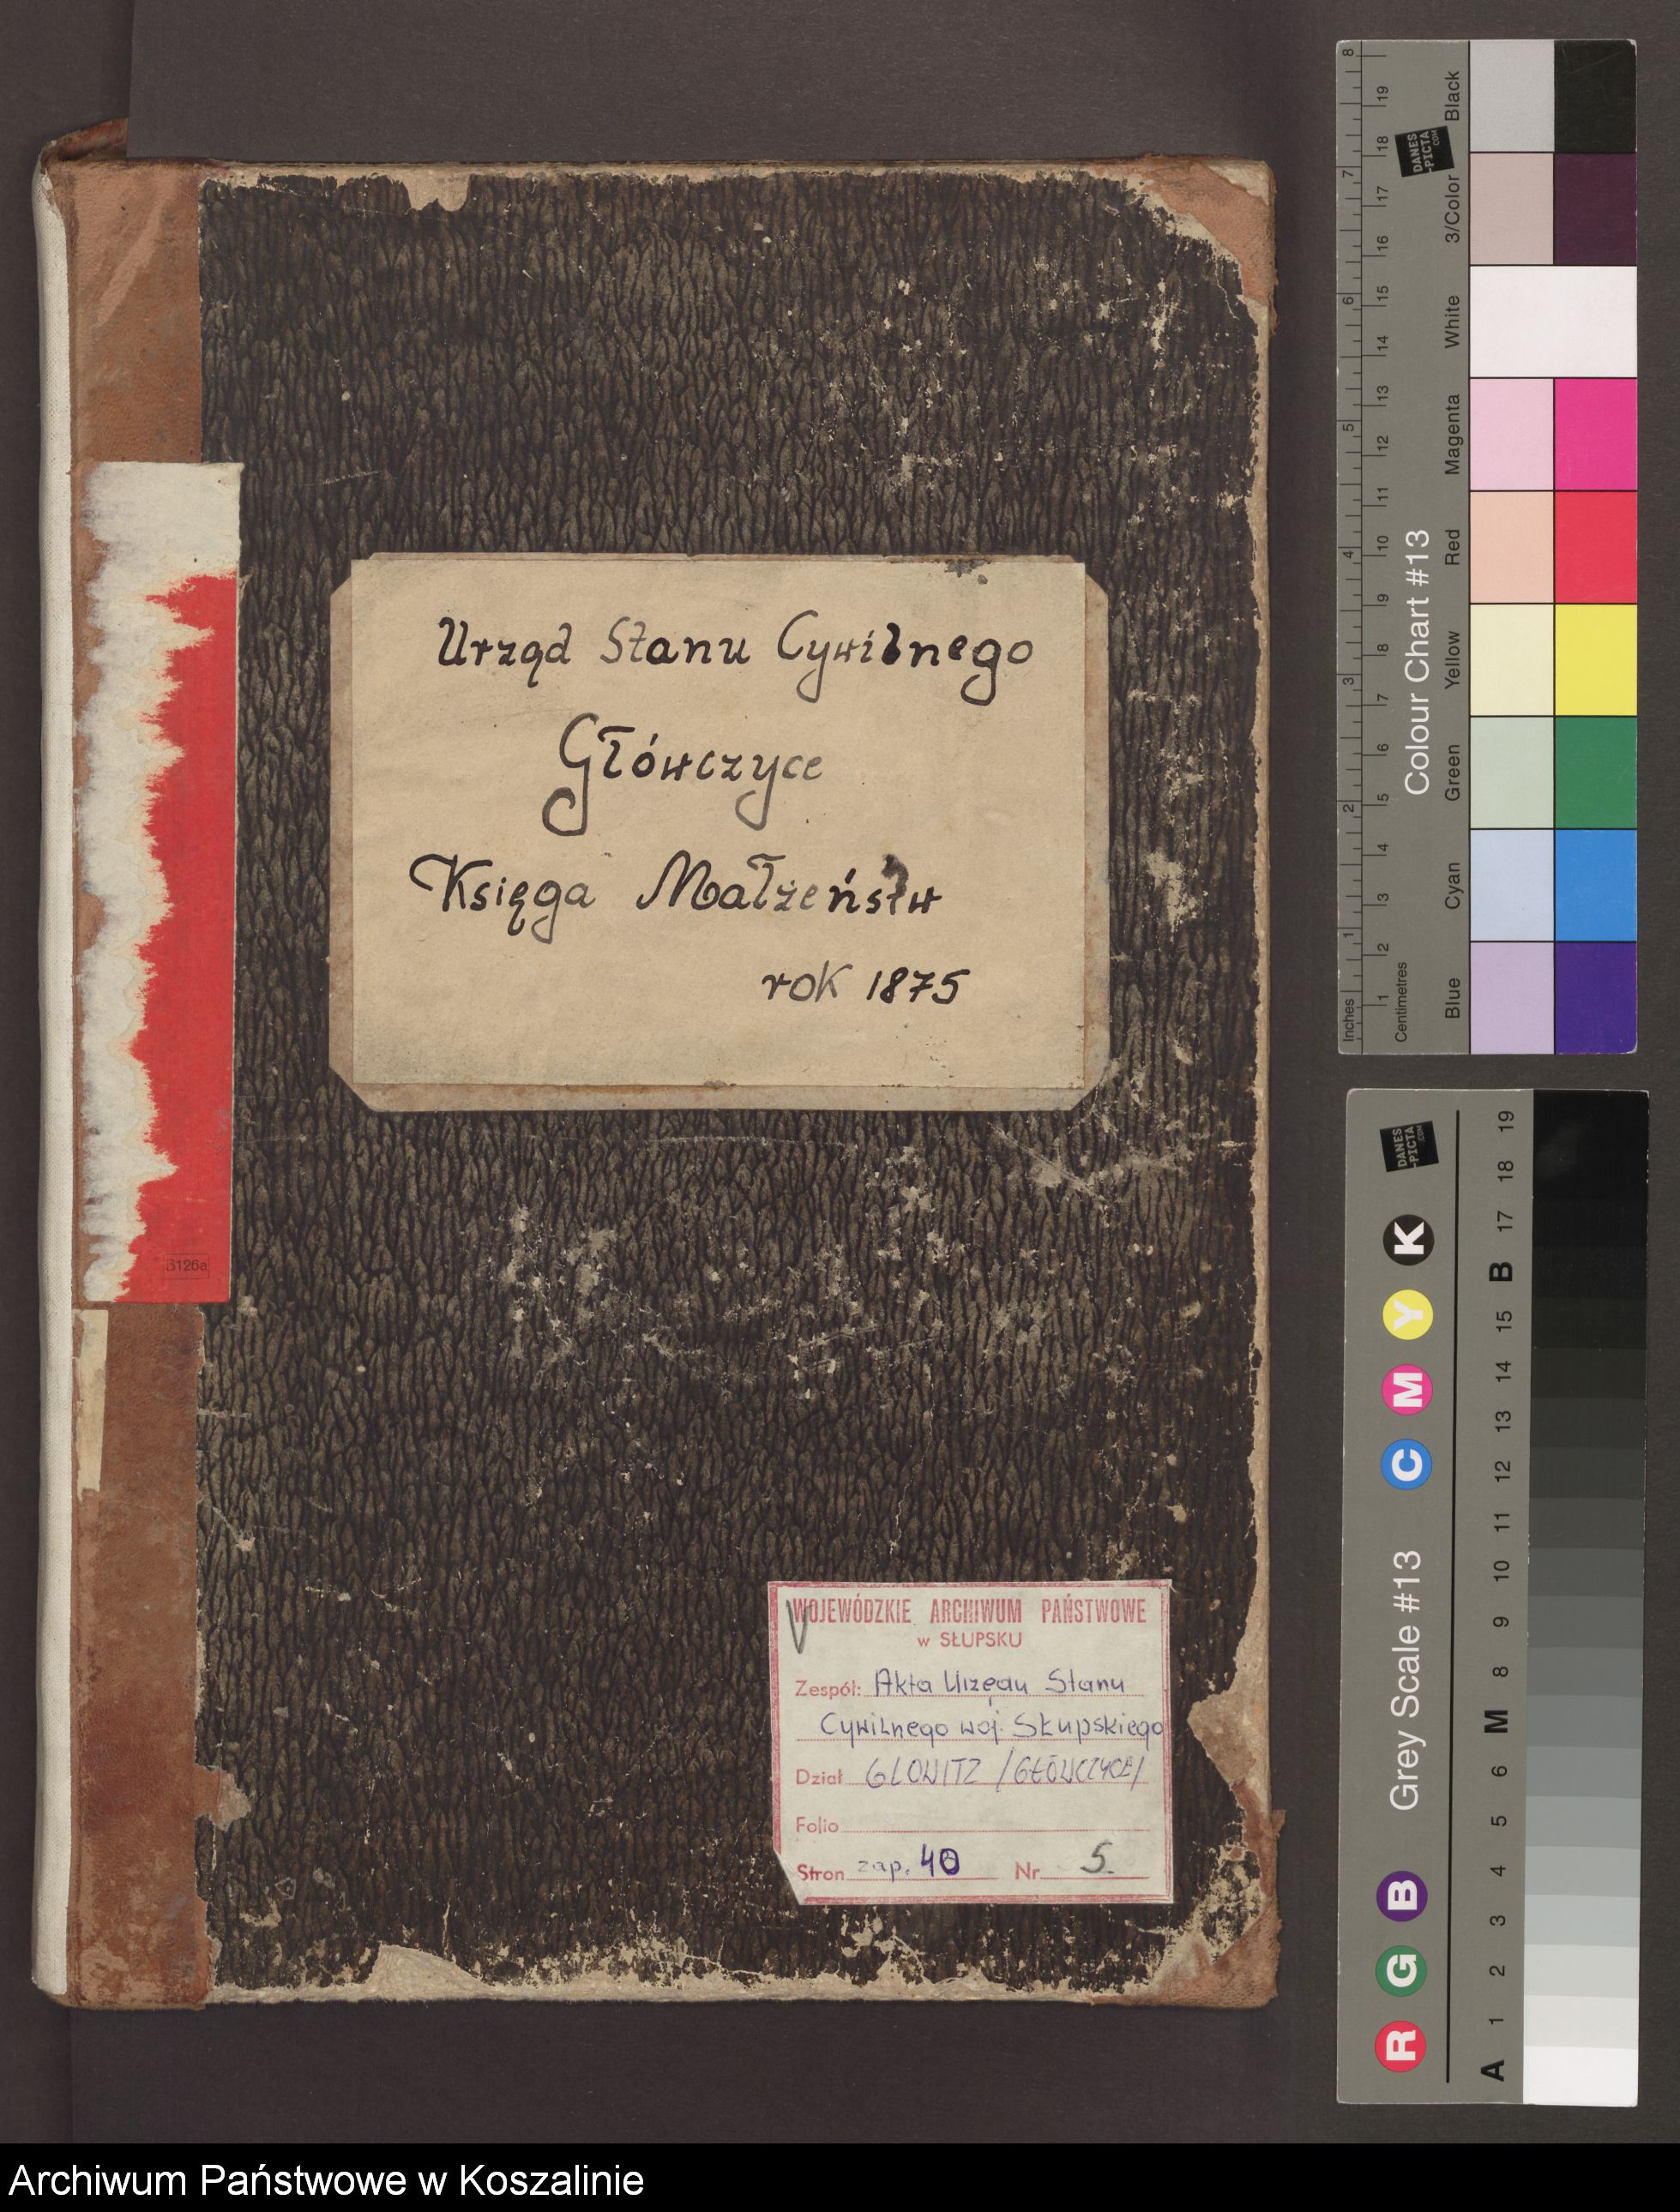 Urząd Stanu Cywilnego
Główczyce
Księga Małżeństw
rok 1875
B126a
WOJEWÓDZKIE ARCHIWUM PAŃSTWOWE
w SŁUPSKU
Zespół: Akta Urzędu Stanu
Cywilnego woj. Słupskiego
Dział GLOWITZ /GŁÓWCZYCE/
Folio
Stron zap. 40 Nr 5.
8 7 6 5 4 3 2 1 Inches
19 18 17 16 15 14 13 12 11 10 9 8 7 6 5 4 3 2 1 Centimetres
DANES
-PICTA
.COM
Colour Chart #13
Black
3/Color
White
Magenta
Red
Yellow
Green
Cyan
Blue
DANES
-PICTA
.COM
R G B Grey Scale #13 C M Y K
A 1 2 3 4 5 6 M 8 9 10 11 12 13 14 15 B 17 18 19
Archiwum Państwowe w Koszalinie